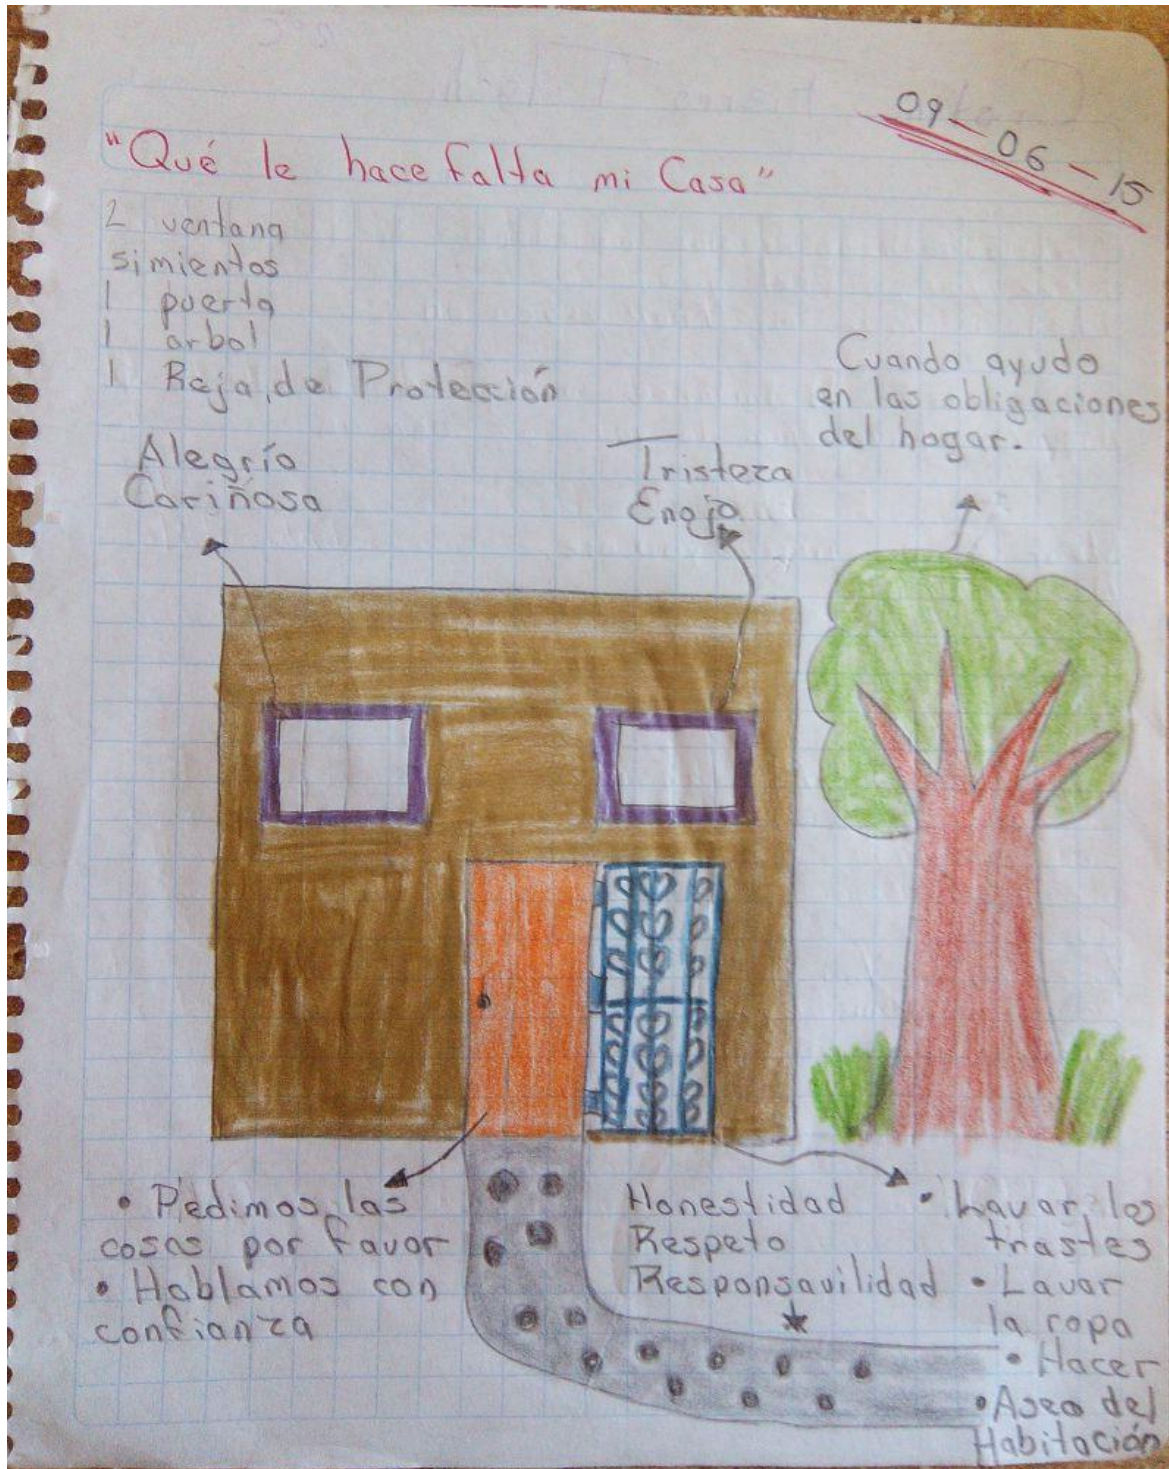 09-06-15
"Qué le hace falta mi Casa"
2 ventana
simientos
1 puerta
1 arbol
1 Reja de Protección
Cuando ayudo
en las obligaciones
del hogar.
Alegrío
Cariñosa
Tristeza
Enojo
• Pedimos las
cosas por favor
• Hablamos con
confianza
Honestidad
Respeto
Responsavilidad
• Lavar los
trastes
• Lavar
la ropa
• Hacer
• Aseo del
Habitación